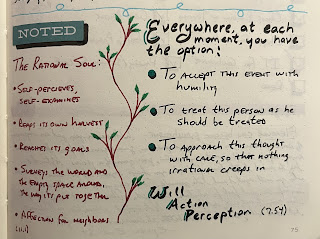 NOTED
The Rational Soul:
• Self-percieves,
self-examines
• Reaps its own harvest
• Reaches its goals
• Surveys the world and
the empty space around,
the way it's put together
• Affection for neighbors
(11.1)
Everywhere, at each
moment, you have
the option:
• To accept this event with
humility
• To treat this person as he
should be treated
• To approach this thought
with care, so that nothing
irrational creeps in
Will
Action
Perception (7.54)
75